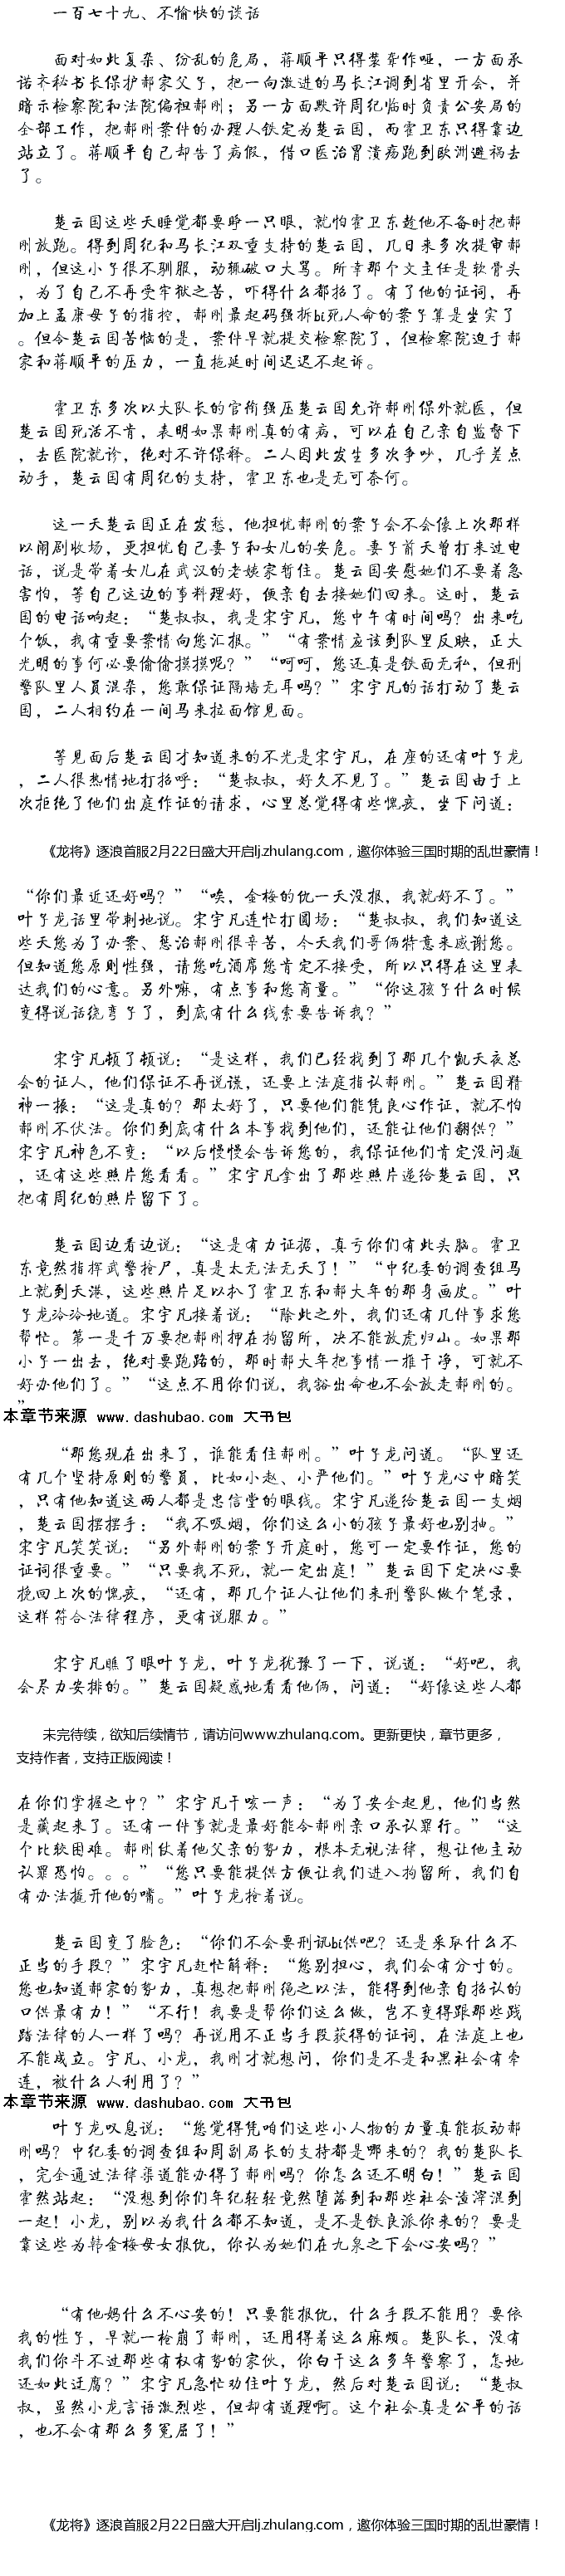 一百七十九、不愉快的谈话
面对如此复杂、纷乱的危局，蒋顺平只得装聋作哑，一方面承
诺齐秘书长保护郝家父子，把一向激进的马长江调到省里开会，并
暗示检察院和法院偏袒郝刚；另一方面默许周纪临时负责公安局的
全部工作，把郝刚案件的办理人铁定为楚云国，而霍卫东只得靠边
站立了。蒋顺平自己却告了病假，借口医治胃溃疡跑到欧洲避祸去
了。
楚云国这些天睡觉都要睁一只眼，就怕霍卫东趁他不备时把郝
刚放跑。得到周纪和马长江双重支持的楚云国，几日来多次提审郝
刚，但这小子很不驯服，动辄破口大骂。所幸那个文主任是软骨头
，为了自己不再受牢狱之苦，吓得什么都招了。有了他的证词，再
加上孟康母子的指控，郝刚最起码强拆bi死人命的案子算是坐实了
。但令楚云国苦恼的是，案件早就提交检察院了，但检察院迫于郝
家和蒋顺平的压力，一直拖延时间迟迟不起诉。
霍卫东多次以大队长的官衔强压楚云国允许郝刚保外就医，但
楚云国死活不肯，表明如果郝刚真的有病，可以在自己亲自监督下
，去医院就诊，绝对不许保释。二人因此发生多次争吵，几乎差点
动手，楚云国有周纪的支持，霍卫东也是无可奈何。
这一天楚云国正在发愁，他担忧郝刚的案子会不会像上次那样
以闹剧收场，更担忧自己妻子和女儿的安危。妻子前天曾打来过电
话，说是带着女儿在武汉的老姨家暂住。楚云国安慰她们不要着急
害怕，等自己这边的事料理好，便亲自去接她们回来。这时，楚云
国的电话响起：“楚叔叔，我是宋宇凡，您中午有时间吗？出来吃
个饭，我有重要案情向您汇报。”“有案情应该到队里反映，正大
光明的事何必要偷偷摸摸呢？”“呵呵，您还真是铁面无私，但刑
警队里人员混杂，您敢保证隔墙无耳吗？”宋宇凡的话打动了楚云
国，二人相约在一间马来拉面馆见面。
等见面后楚云国才知道来的不光是宋宇凡，在座的还有叶子龙
，二人很热情地打招呼：“楚叔叔，好久不见了。”楚云国由于上
次拒绝了他们出庭作证的请求，心里总觉得有些愧疚，坐下问道：
《龙将》逐浪首服2月22日盛大开启lj.zhulang.com，邀你体验三国时期的乱世豪情！
“你们最近还好吗？”“唉，金梅的仇一天没报，我就好不了。”
叶子龙话里带刺地说。宋宇凡连忙打圆场：“楚叔叔，我们知道这
些天您为了办案、惩治郝刚很辛苦，今天我们哥俩特意来感谢您。
但知道您原则性强，请您吃酒席您肯定不接受，所以只得在这里表
达我们的心意。另外嘛，有点事和您商量。”“你这孩子什么时候
变得说话绕弯子了，到底有什么线索要告诉我？”
宋宇凡顿了顿说：“是这样，我们已经找到了那几个凯天夜总
会的证人，他们保证不再说谎，还要上法庭指认郝刚。”楚云国精
神一振：“这是真的？那太好了，只要他们能凭良心作证，就不怕
郝刚不伏法。你们到底有什么本事找到他们，还能让他们翻供？”
宋宇凡神色不变：“以后慢慢会告诉您的，我保证他们肯定没问题
，还有这些照片您看看。”宋宇凡拿出了那些照片递给楚云国，只
把有周纪的照片留下了。
楚云国边看边说：“这是有力证据，真亏你们有此头脑。霍卫
东竟然指挥武警抢尸，真是太无法无天了！”“中纪委的调查组马
上就到天港，这些照片足以扒了霍卫东和郝大年的那身画皮。”叶
子龙冷冷地道。宋宇凡接着说：“除此之外，我们还有几件事求您
帮忙。第一是千万要把郝刚押在拘留所，决不能放虎归山。如果那
小子一出去，绝对要跑路的，那时郝大年把事情一推干净，可就不
好办他们了。”“这点不用你们说，我豁出命也不会放走郝刚的。
”
本章节来源 www.dashubao.com 大书包
“那您现在出来了，谁能看住郝刚。”叶子龙问道。“队里还
有几个坚持原则的警员，比如小赵、小严他们。”叶子龙心中暗笑
，只有他知道这两人都是忠信堂的眼线。宋宇凡递给楚云国一支烟
，楚云国摆摆手：“我不吸烟，你们这么小的孩子最好也别抽。”
宋宇凡笑笑说：“另外郝刚的案子开庭时，您可一定要作证，您的
证词很重要。”“只要我不死，就一定出庭！”楚云国下定决心要
挽回上次的愧疚，“还有，那几个证人让他们来刑警队做个笔录，
这样符合法律程序，更有说服力。”
宋宇凡瞧了眼叶子龙，叶子龙犹豫了一下，说道：“好吧，我
会尽力安排的。”楚云国疑惑地看看他俩，问道：“好像这些人都
未完待续，欲知后续情节，请访问www.zhulang.com。更新更快，章节更多，
支持作者，支持正版阅读！
在你们掌握之中？”宋宇凡干咳一声：“为了安全起见，他们当然
是藏起来了。还有一件事就是最好能令郝刚亲口承认罪行。”“这
个比较困难。郝刚仗着他父亲的势力，根本无视法律，想让他主动
认罪恐怕。。。”“您只要能提供方便让我们进入拘留所，我们自
有办法撬开他的嘴。”叶子龙抢着说。
楚云国变了脸色：“你们不会要刑讯bi供吧？还是采取什么不
正当的手段？”宋宇凡赶忙解释：“您别担心，我们会有分寸的。
您也知道郝家的势力，真想把郝刚绳之以法，能得到他亲自招认的
口供最有力！”“不行！我要是帮你们这么做，岂不变得跟那些践
踏法律的人一样了吗？再说用不正当手段获得的证词，在法庭上也
不能成立。宇凡、小龙，我刚才就想问，你们是不是和黑社会有牵
连，被什么人利用了？”
本章节来源 www.dashubao.com 大书包
叶子龙叹息说：“您觉得凭咱们这些小人物的力量真能扳动郝
刚吗？中纪委的调查组和周副局长的支持都是哪来的？我的楚队长
，完全通过法律渠道能办得了郝刚吗？你怎么还不明白！”楚云国
霍然站起：“没想到你们年纪轻轻竟然堕落到和那些社会渣滓混到
一起！小龙，别以为我什么都不知道，是不是铁良派你来的？要是
靠这些为韩金梅母女报仇，你认为她们在九泉之下会心安吗？”
“有他妈什么不心安的！只要能报仇，什么手段不能用？要依
我的性子，早就一枪崩了郝刚，还用得着这么麻烦。楚队长，没有
我们你斗不过那些有权有势的家伙，你白干这么多年警察了，怎地
还如此迂腐？”宋宇凡急忙劝住叶子龙，然后对楚云国说：“楚叔
叔，虽然小龙言语激烈些，但却有道理啊。这个社会真是公平的话
，也不会有那么多冤屈了！”
《龙将》逐浪首服2月22日盛大开启lj.zhulang.com，邀你体验三国时期的乱世豪情！